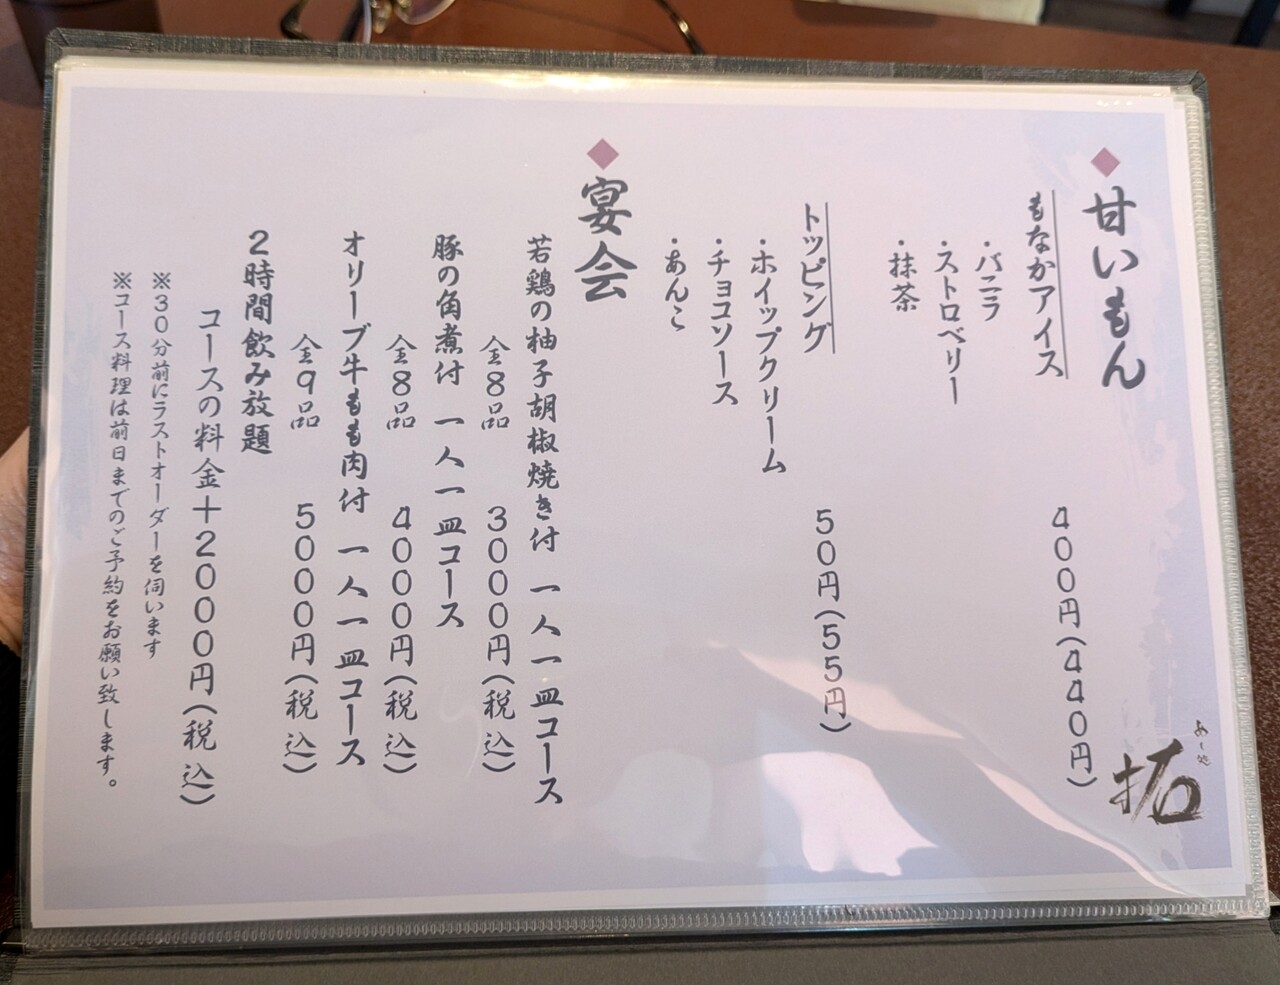 ◆甘いもん
もなかアイス 400円(440円)
・バニラ
・ストロベリー
・抹茶
トッピング 50円(55円)
・ホイップクリーム
・チョコソース
・あんこ
◆宴会
若鶏の柚子胡椒焼き付 一人一皿コース
全8品 3000円(税込)
豚の角煮付 一人一皿コース
全8品 4000円(税込)
オリーブ牛もも肉付 一人一皿コース
全9品 5000円(税込)
2時間飲み放題
コースの料金+2000円(税込)
※30分前にラストオーダーを伺います
※コース料理は前日までのご予約をお願い致します。
拓